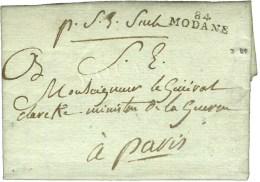 84
MODANE
S. E.
Monseigneur le Général
Clarke ministre de la Guerre
à Paris